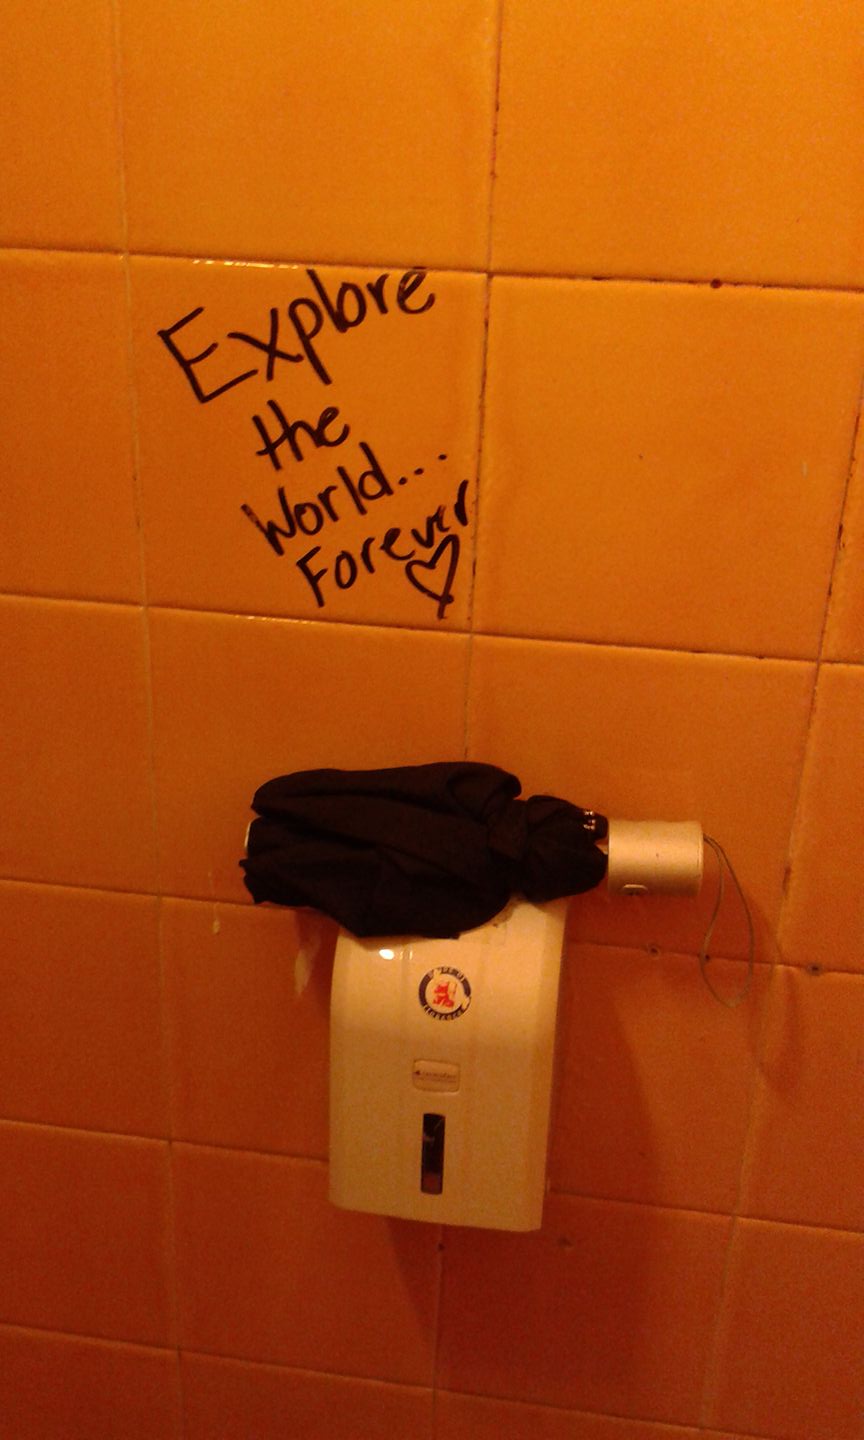 Explore
the
World...
Forever